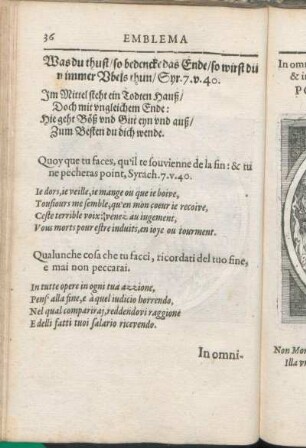 36 EMBLEMA
Was du thust/so bedencke das Ende/so wirst du
nimmer Vbels thun/Syr.7.v.40.
Im Mittel steht ein Todten Hauß/
Doch mit vngleichem Ende:
Hie geht Böß vnd Gut eyn vnd auß/
Zum Besten du dich wende.
Quoy que tu faces, qu'il te souvienne de la fin: & tu
ne pecheras point, Syrach.7.v.40.
Ie dors, ie veille, ie mange ou que ie boive,
Tousiours me semble, qu'en mon coeur ie recoive,
Ceste terrible voix: venez au iugement,
Vous morts pour estre induits, en ioye ou tourment.
Qualunche cosa che tu facci, ricordati del tuo fine,
e mai non peccarai.
In tutte opere in ogni tua azzione,
Pens' alla fine, e à quel iudicio horrendo,
Nel qual comparirai, reddendovi raggione
E delli fatti tuoi salario ricevendo.
In omni-
In omn
& i
P
Non Mor
Illa vn